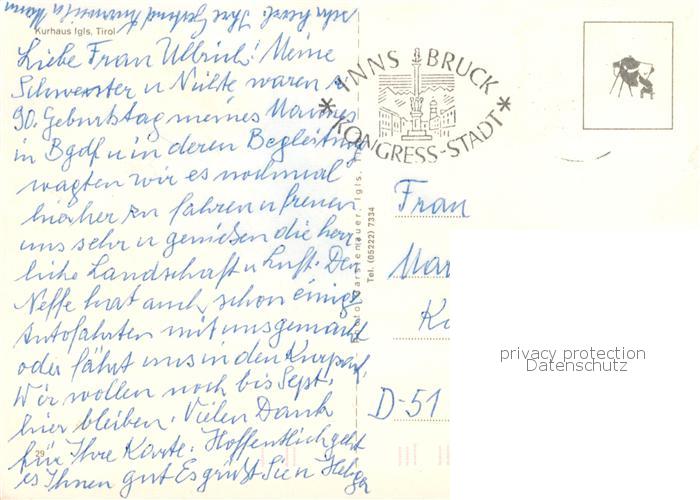 Kurhaus Igls, Tirol
Liebe Frau Ullrich! Meine
Schwester u Nichte waren z
90. Geburtstag meines Mannes
in Bgdf u in deren Begleitung
wagten wir es nochmal
hierher zu fahren u freuen
uns sehr u genießen die herr
liche Landschaft u Luft. Der
Neffe hat auch schon einige
Autofahrten mit uns gemacht
oder fährt uns in den Kurpark.
Wir wollen noch bis Sept.
hier bleiben. Vielen Dank
für Ihre Karte. Hoffentlich geht
es Ihnen gut Es grüßt Sie u
sehr herzl. Ihre
29
INNSBRUCK
* KONGRESS-STADT *
Igls,
Tel. (05222) 7334
Frau
Mar
D-51
privacy protection
Datenschutz